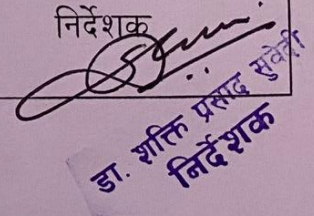 निर्देशक
डा. शक्ति प्रसाद सुवेदी
निर्देशक